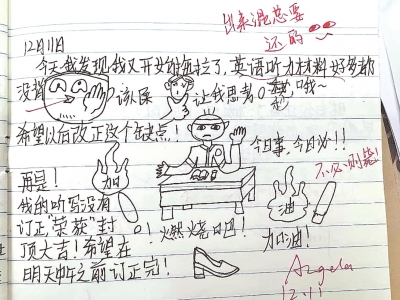 出来混总要
还的
12月11日
今天我发现我又开始拖拉了,英语听力材料好多都
没 该保 让我思考0秒,哦~
希望以后改正这个缺点!
今日事,今日必!!
再是! 加
不必则药!
我的听写没有
订正"荣获"封
油
!火燃烧吧! 加油!
顶大吉!希望在
明天中午之前订正完!
Angela
12.11